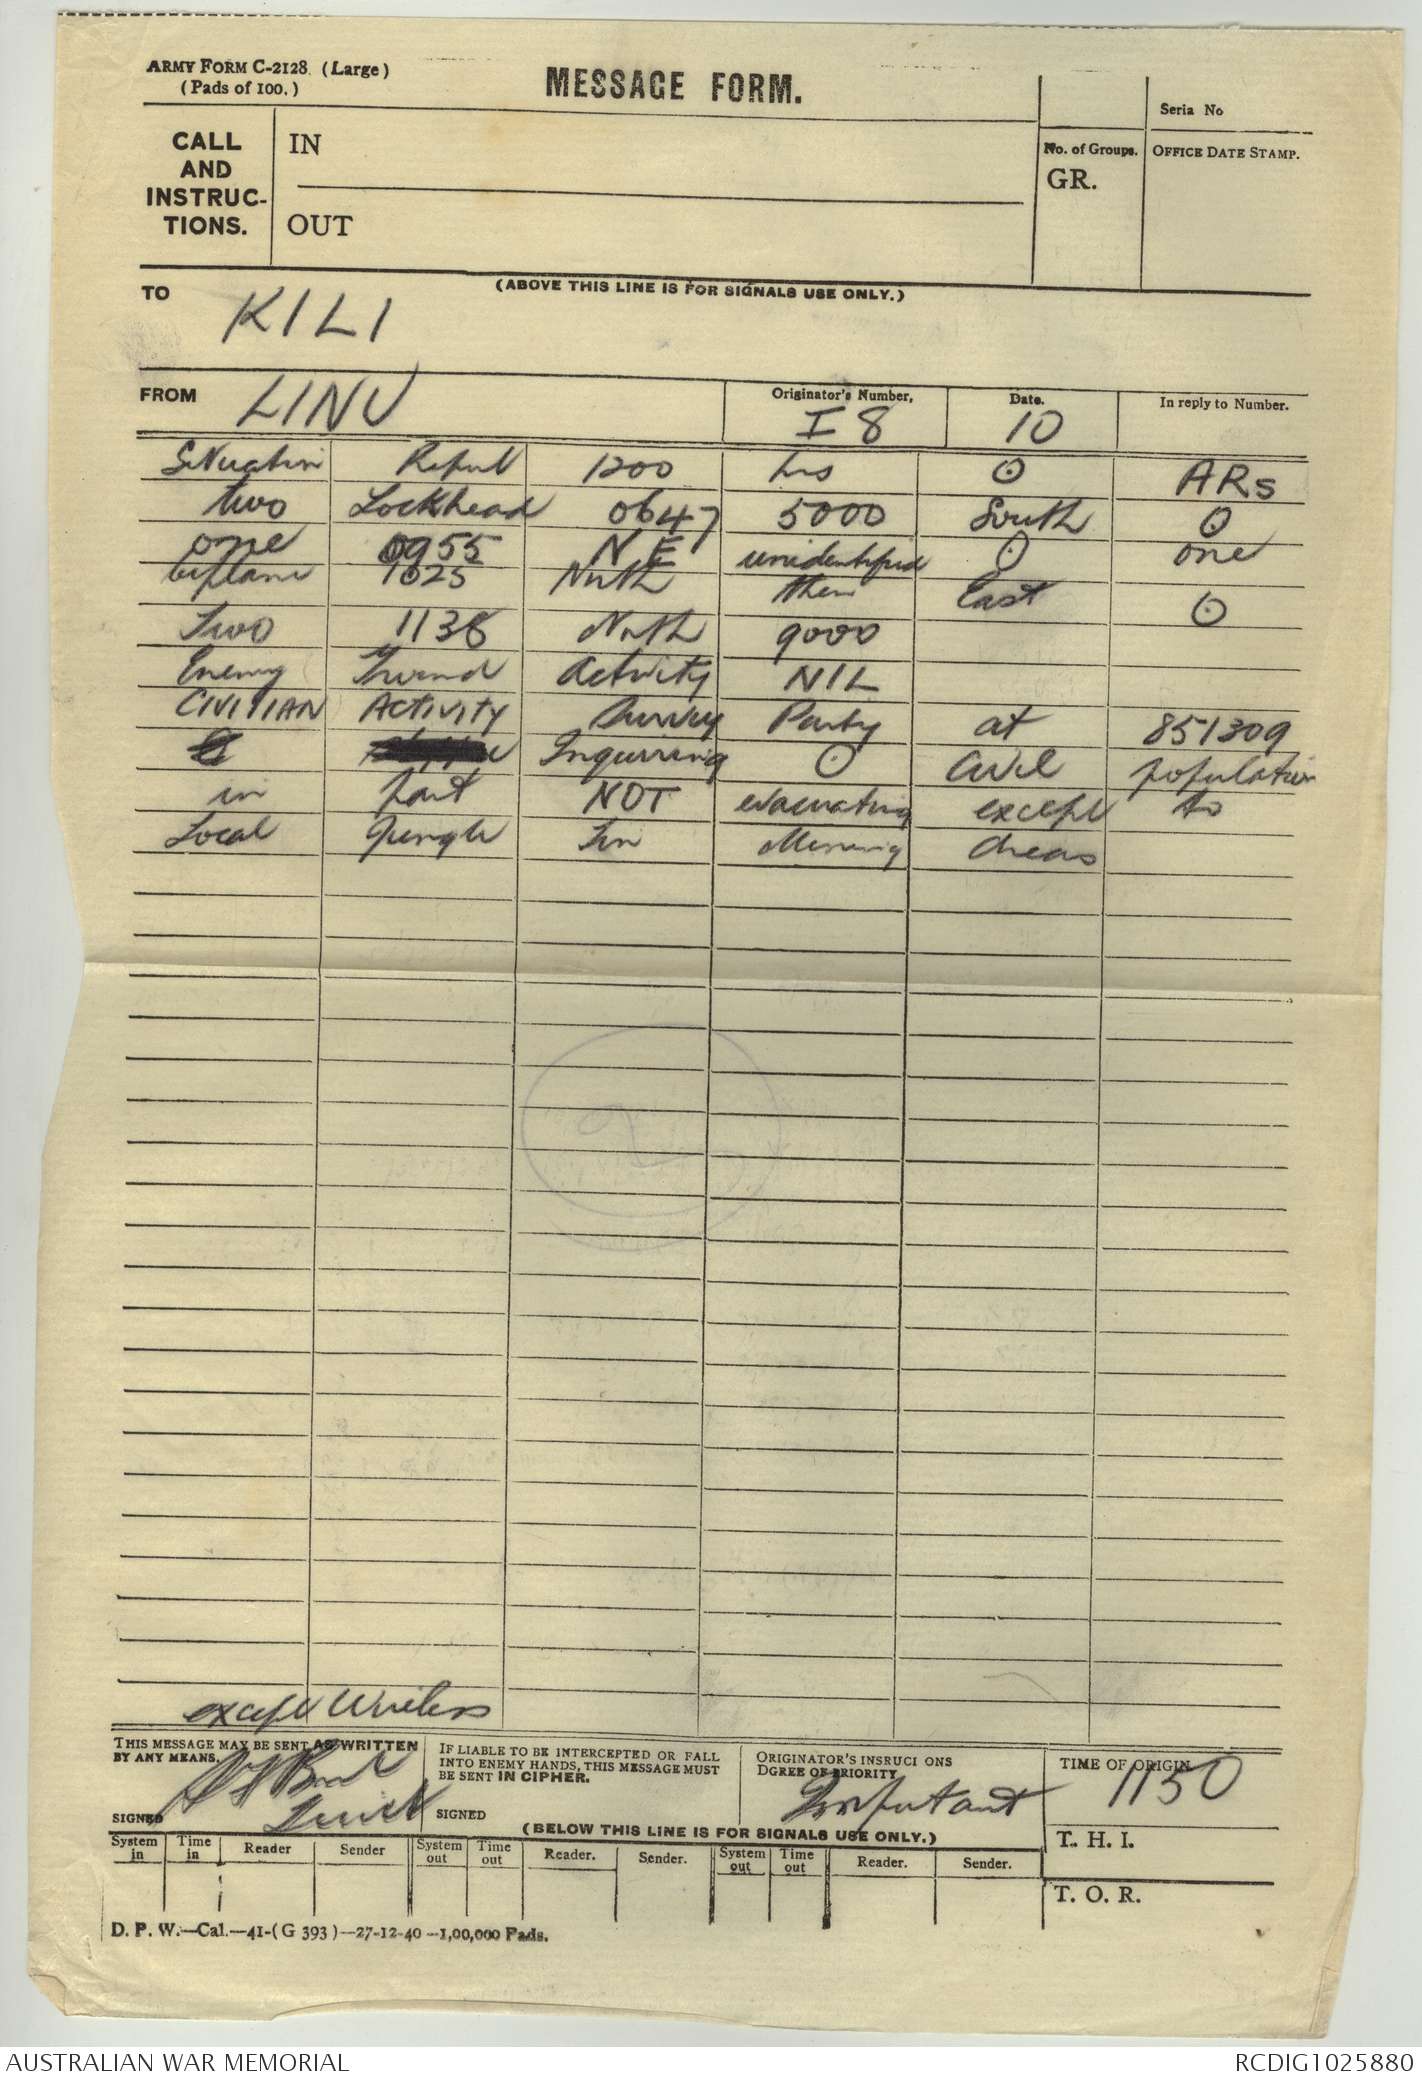 ARMY FORM C-2128. (Large)
(Pads of 100.)
MESSAGE FORM.
Seria No
CALL
AND
INSTRUC-
TIONS.
IN
OUT
No. of Groups.
GR.
OFFICE DATE STAMP.
(ABOVE THIS LINE IS FOR SIGNALS USE ONLY.)
TO KILI
FROM LINU
Originator's Number, I 8
Date. 10
In reply to Number.
Situation Report 1200 hrs ⊙ ARs
two Lockhead 0647 5000 South ⊙
one 0955 NE unidentified ⊙ one
biplane 1025 North then East ⊙
Two 1138 North 9000
Enemy Ground Activity NIL
CIVILIAN ACTIVITY Survey Party at 851309
Inquirring ⊙ Civil population
in part NOT evacuating except to
Local Jungle Tin Mining areas
2
except Wireless
THIS MESSAGE MAY BE SENT AS WRITTEN
BY ANY MEANS.
SIGNED
IF LIABLE TO BE INTERCEPTED OR FALL
INTO ENEMY HANDS, THIS MESSAGE MUST
BE SENT IN CIPHER.
SIGNED
ORIGINATOR'S INSRUCI ONS
DGREE OF PRIORITY
Important
TIME OF ORIGIN
1150
(BELOW THIS LINE IS FOR SIGNALS USE ONLY.)
T. H. I.
System in Time in Reader Sender System out Time out Reader. Sender. System out Time out Reader. Sender.
T. O. R.
D. P. W.—Cal.—41-(G 393)—27-12-40—1,00,000 Pads.
AUSTRALIAN WAR MEMORIAL RCDIG1025880